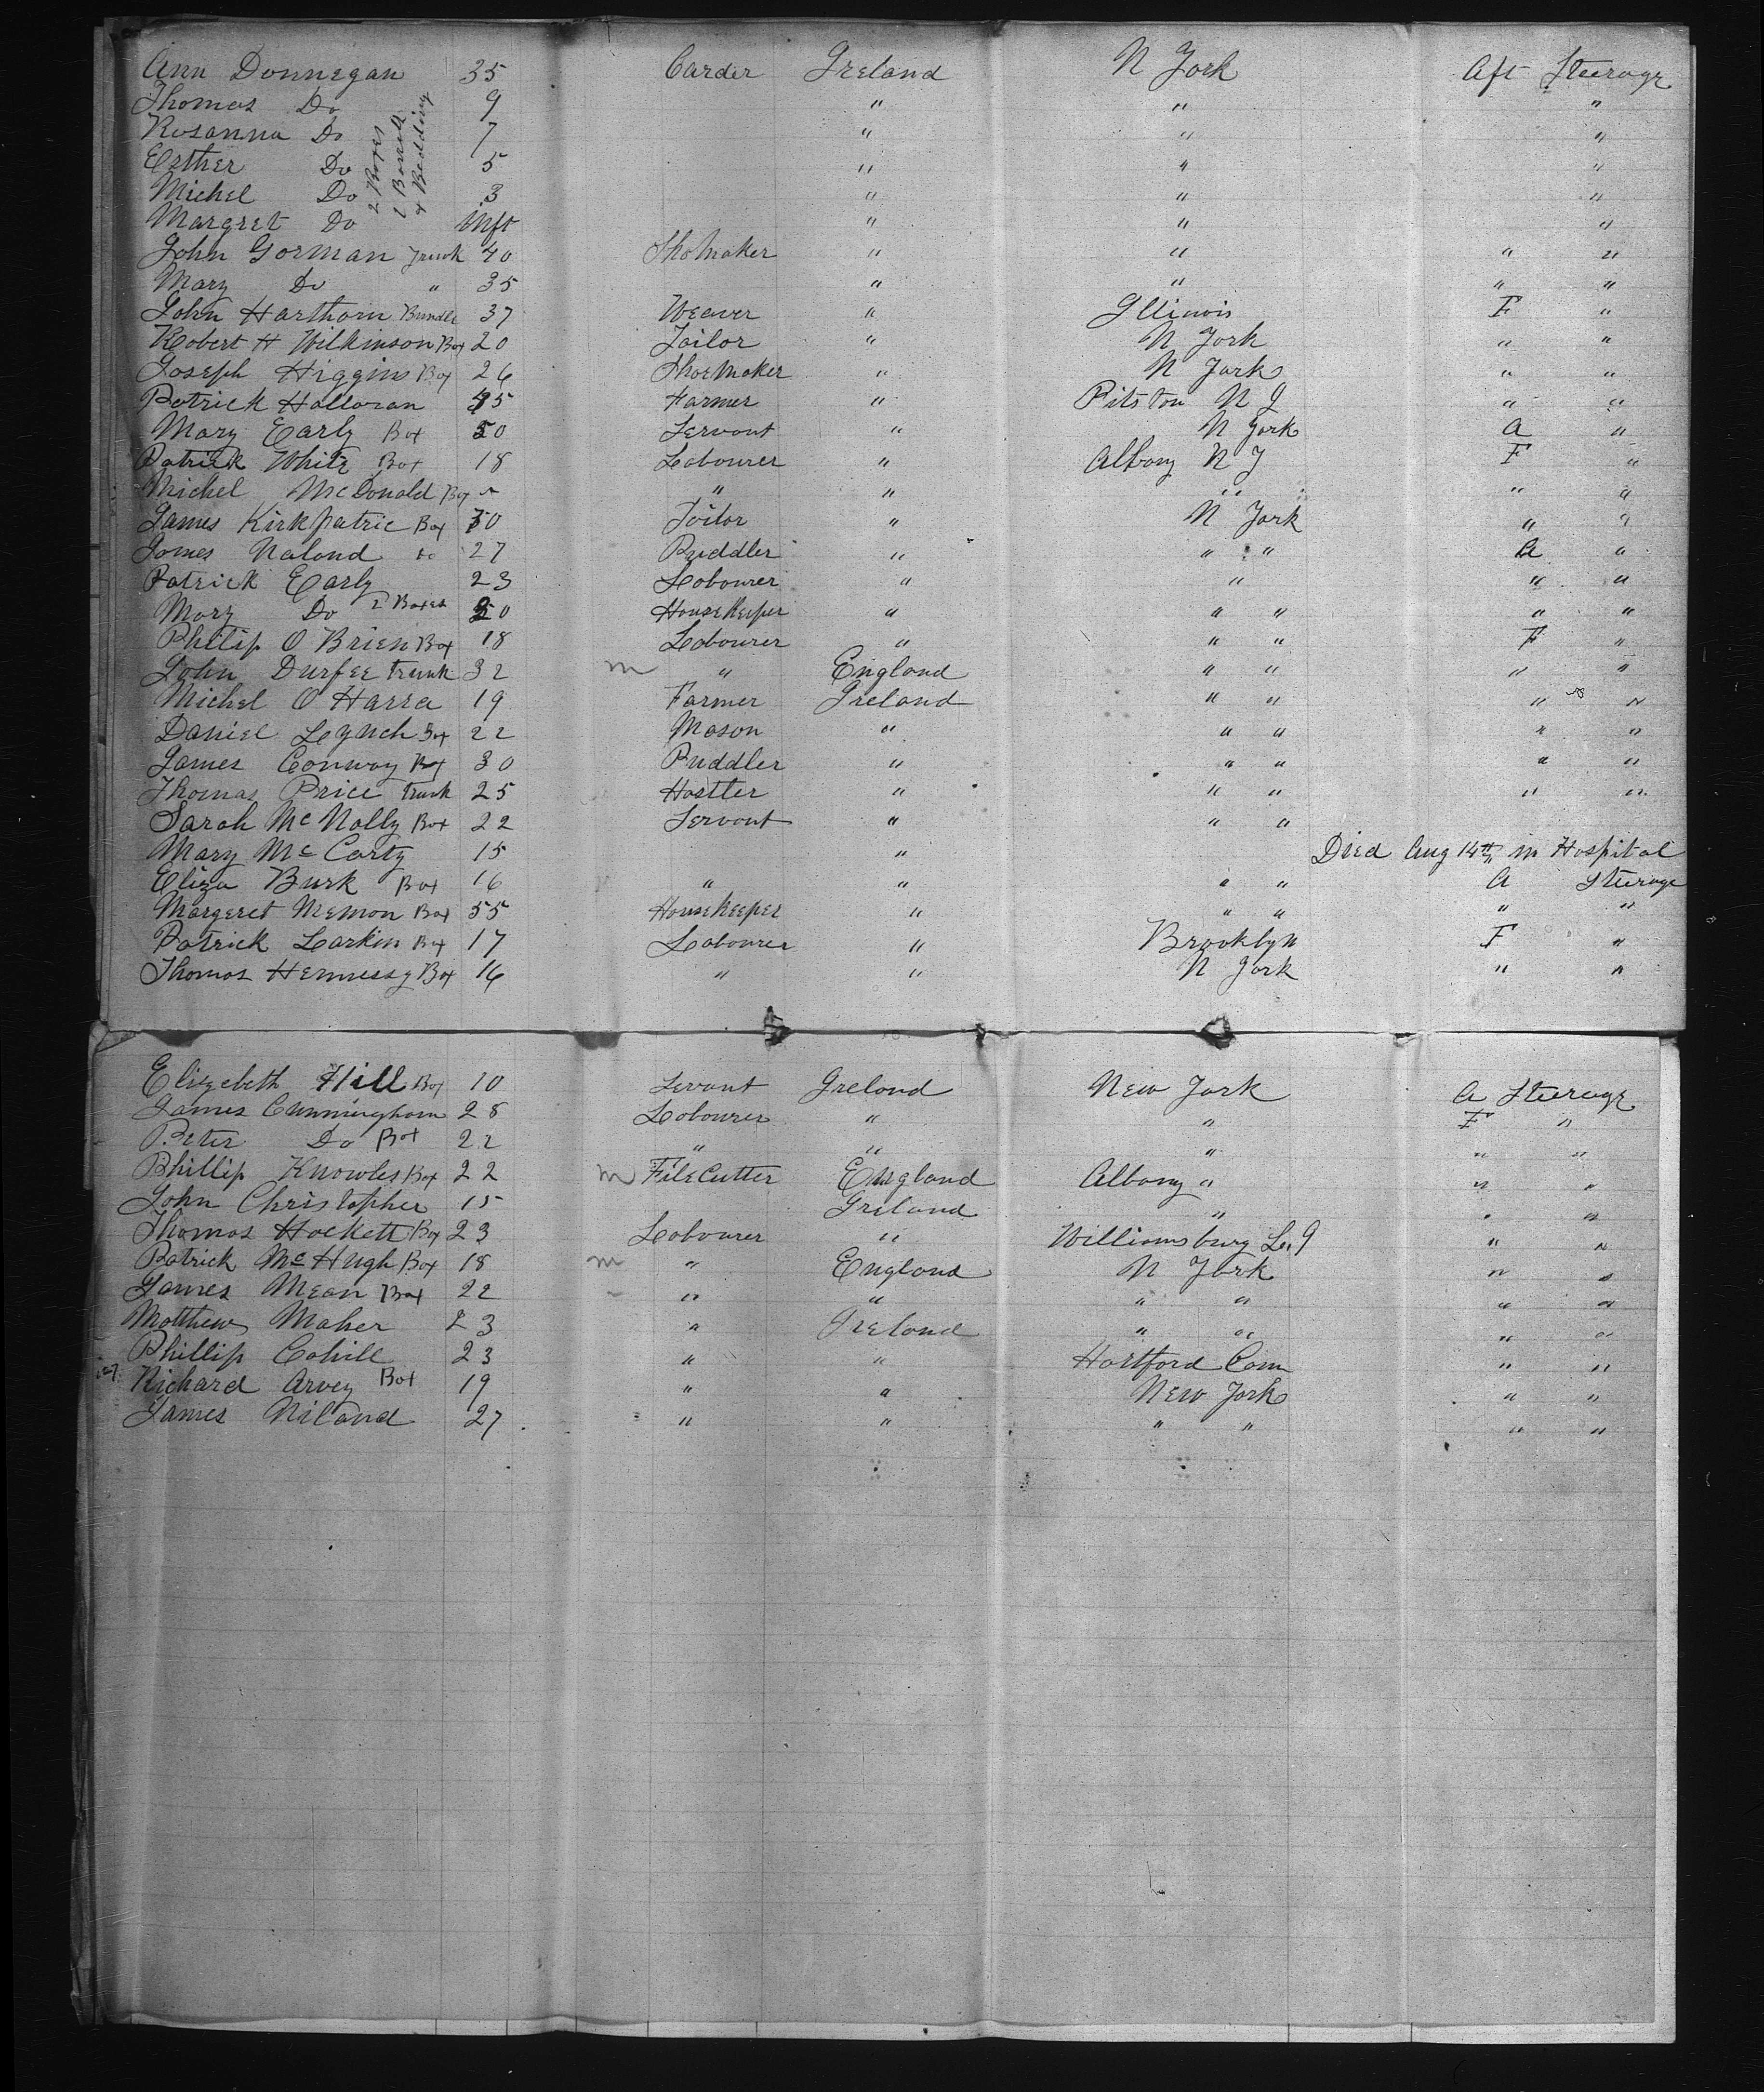 Ann Donnegan 35 Carder Ireland N York Aft Steerage
Thomas Do 9 " " "
Rosanna Do 7 " " "
Esther Do 5 " " "
Michel Do 3 " " "
Margret Do Inft " " "
2 Boxes
1 Barrell
4 Bedding
John Gorman Trunk 40 Shomaker " " " "
Mary Do " 35 " " " "
John Harthorn Bundle 37 Weaver " Illinois F "
Robert H Wilkinson Box 20 Tailor " N York " "
Joseph Higgins Box 26 Shoemaker " N York " "
Patrick Halloran 45 Farmer " Pitston N J " "
Mary Early Box 50 Servant " N York A "
Patrick White Box 18 Labourer " Albany N Y F "
Michel McDonald Box " " " " " "
James Kirkpatric Box 30 Tailor " N York " "
James Naland do 27 Puddler " " " A "
Patrick Early 23 Labourer " " " "
Mary Do 2 Boxes 20 HouseKeeper " " " " "
Philip O Brien Box 18 Labourer " " " F "
John Durfee trunk 32 m " England " " " "
Michel O Harra 19 Farmer Ireland " " " "
Daniel Leynch Box 22 Mason " " " " "
James Conway Box 30 Puddler " " " " "
Thomas Price trunk 25 Hostler " " " " "
Sarah McNally Box 22 Servant " " "
Mary McCarty 15 " Died Aug 14th in Hospital
Eliza Burk Box 16 " " " " A Steerage
Margeret Memon Box 55 HouseKeeper " " " " "
Patrick Larkin Box 17 Labourer " Brooklyn F "
Thomas Hennessy Box 16 " " N York " "
Elizebeth Hill Box 10 Servant Ireland New York A Steerage
James Cunningham 28 Labourer " " F "
Peter Do Box 22 " " " " "
Phillip Knowles Box 22 m File Cutter England Albany " " "
John Christopher 15 Ireland " " "
Thomas Hockett Box 23 Labourer " Williamsburg L. I " "
Patrick McHugh Box 18 m " England N York " "
James Mean Box 22 " " " " " "
Matthew Maher 23 " Ireland " " " "
Phillip Cohill 23 " " Hartford Conn " "
Richard Arvey Box 19 " " New York " "
James Niland 27 " " " " " "